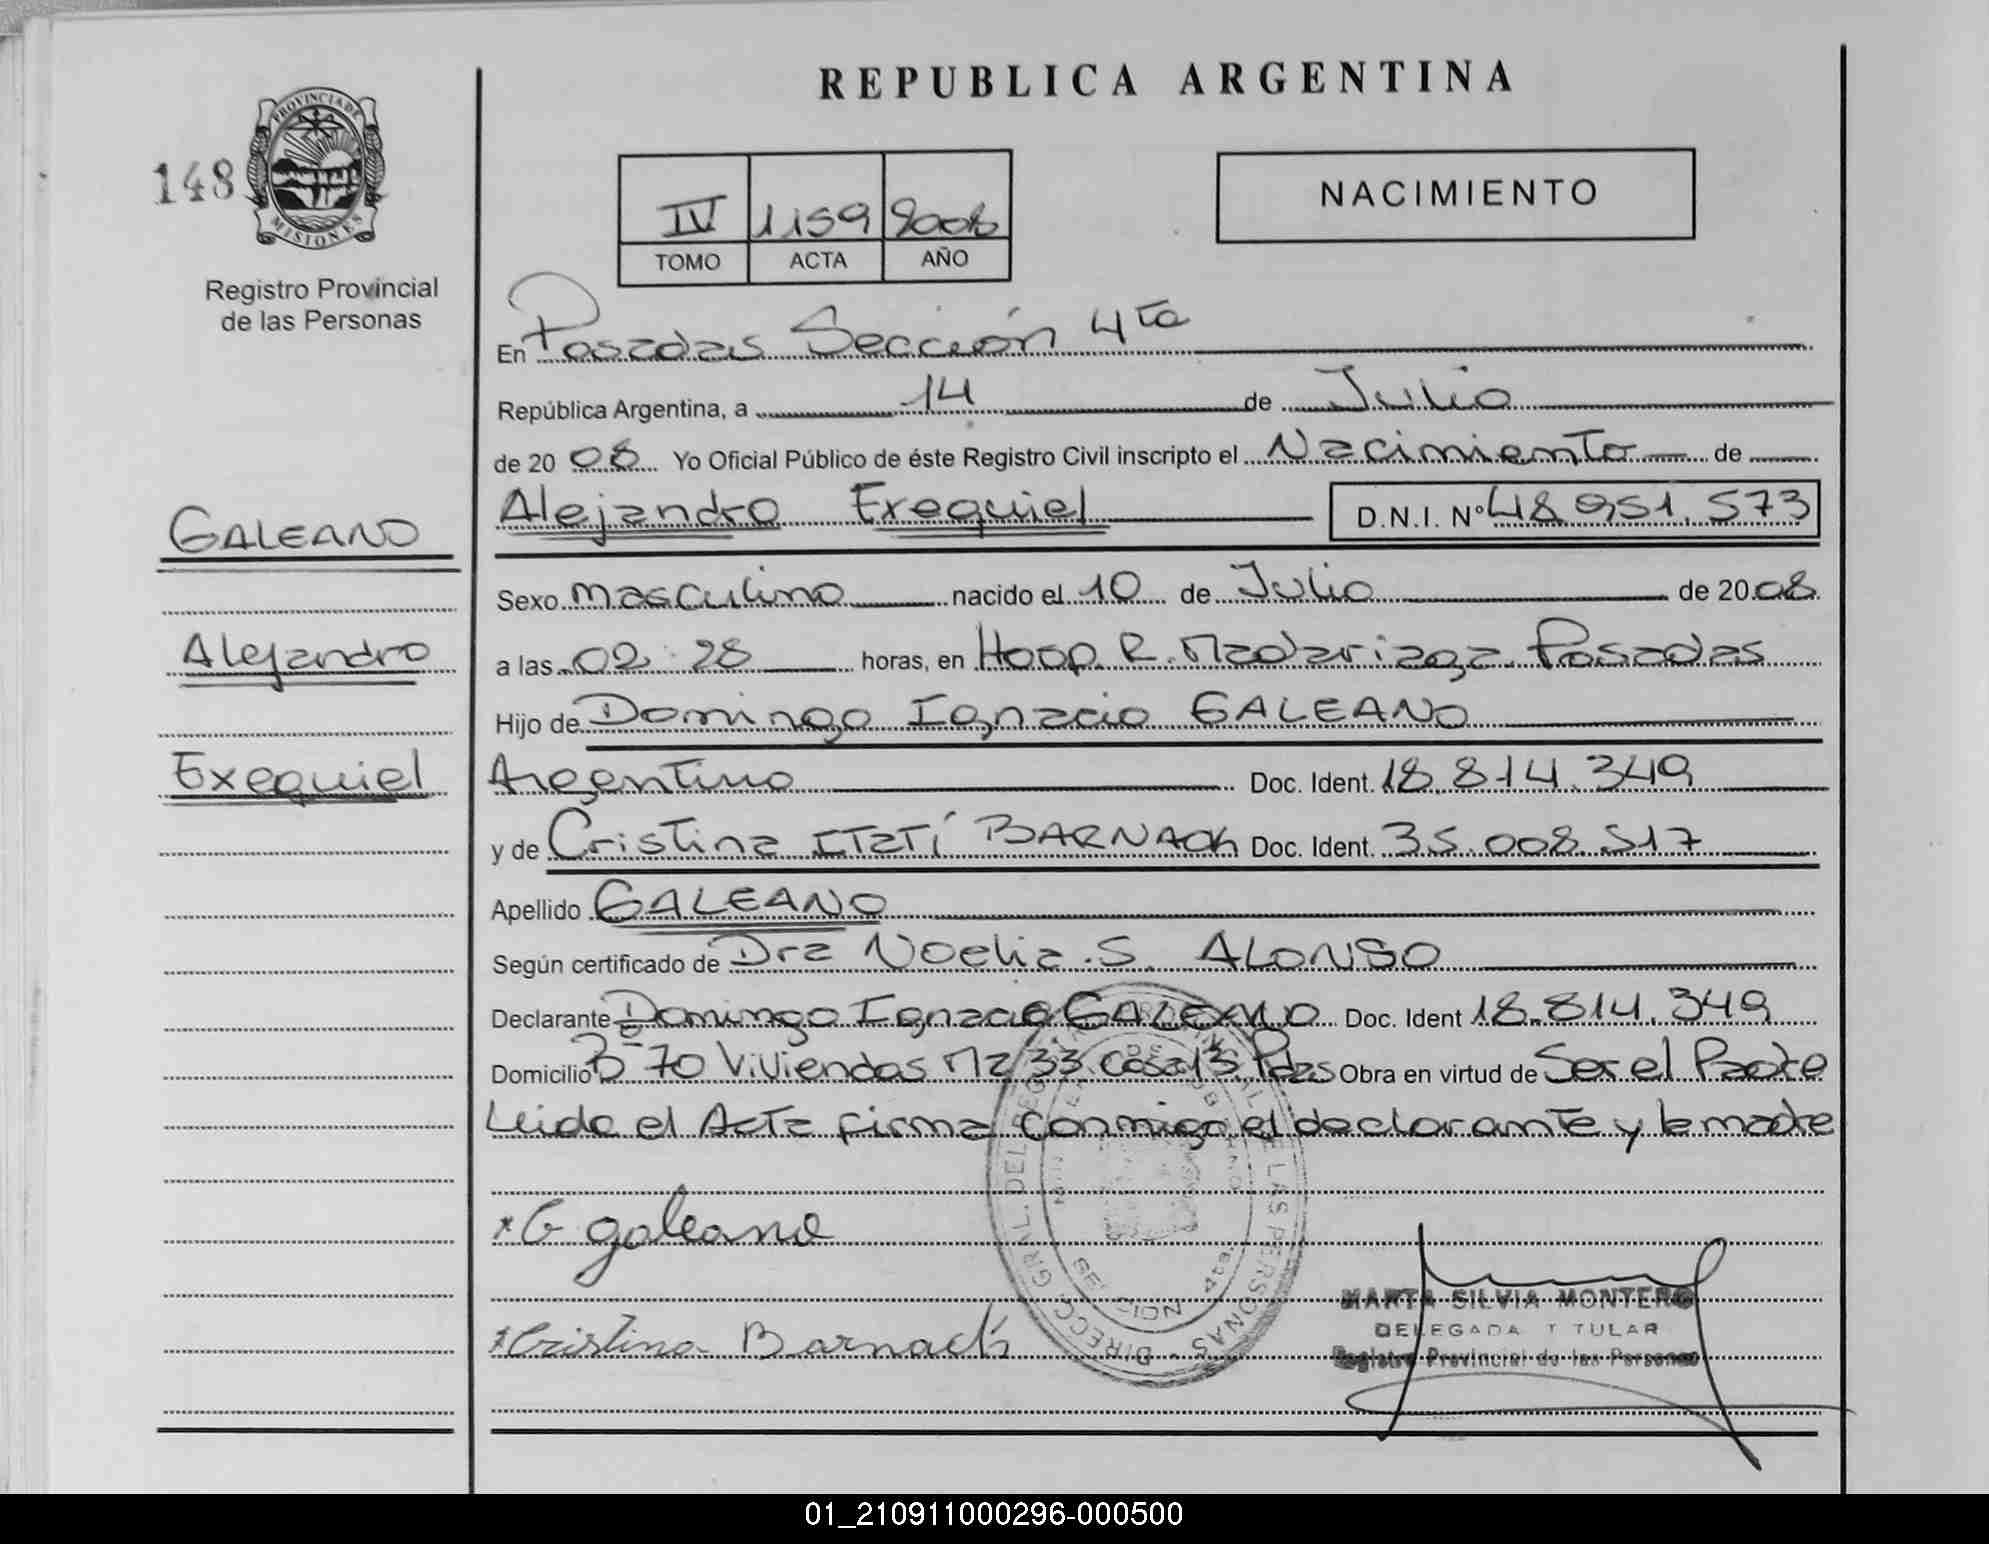 REPUBLICA ARGENTINA
148
PROVINCIA DE
MISIONES
Registro Provincial
de las Personas
IV 1159 2008
TOMO ACTA AÑO
NACIMIENTO
En Posadas Sección 4ta
República Argentina, a 14 de Julio
de 20 08 Yo Oficial Público de éste Registro Civil inscripto el Nacimiento de
Alejandro Exequiel D.N.I. Nº 48.951.573
GALEANO
Sexo masculino nacido el 10 de Julio de 20 08
Alejandro
a las 02:28 horas, en Hosp. R. Madariaga Posadas
Hijo de Domingo Ignacio GALEANO
Exequiel
Argentino Doc. Ident. 18.814.349
y de Cristina Itatí BARNACK Doc. Ident. 35.008.517
Apellido GALEANO
Según certificado de Dra Noelia S. ALONSO
Declarante Domingo Ignacio GALEANO Doc. Ident 18.814.349
Domicilio Bº 70 Viviendas Mz 33 casa 13 Pdas Obra en virtud de Ser el Padre
Leida el Acta firma conmigo el declarante y la madre
galeano
Cristina Barnack
DIRECC. GRAL. DEL REGISTRO PROVINCIAL DE LAS PERSONAS
MARTA SILVIA MONTERO
DELEGADA TITULAR
Registro Provincial de las Personas
01_210911000296-000500